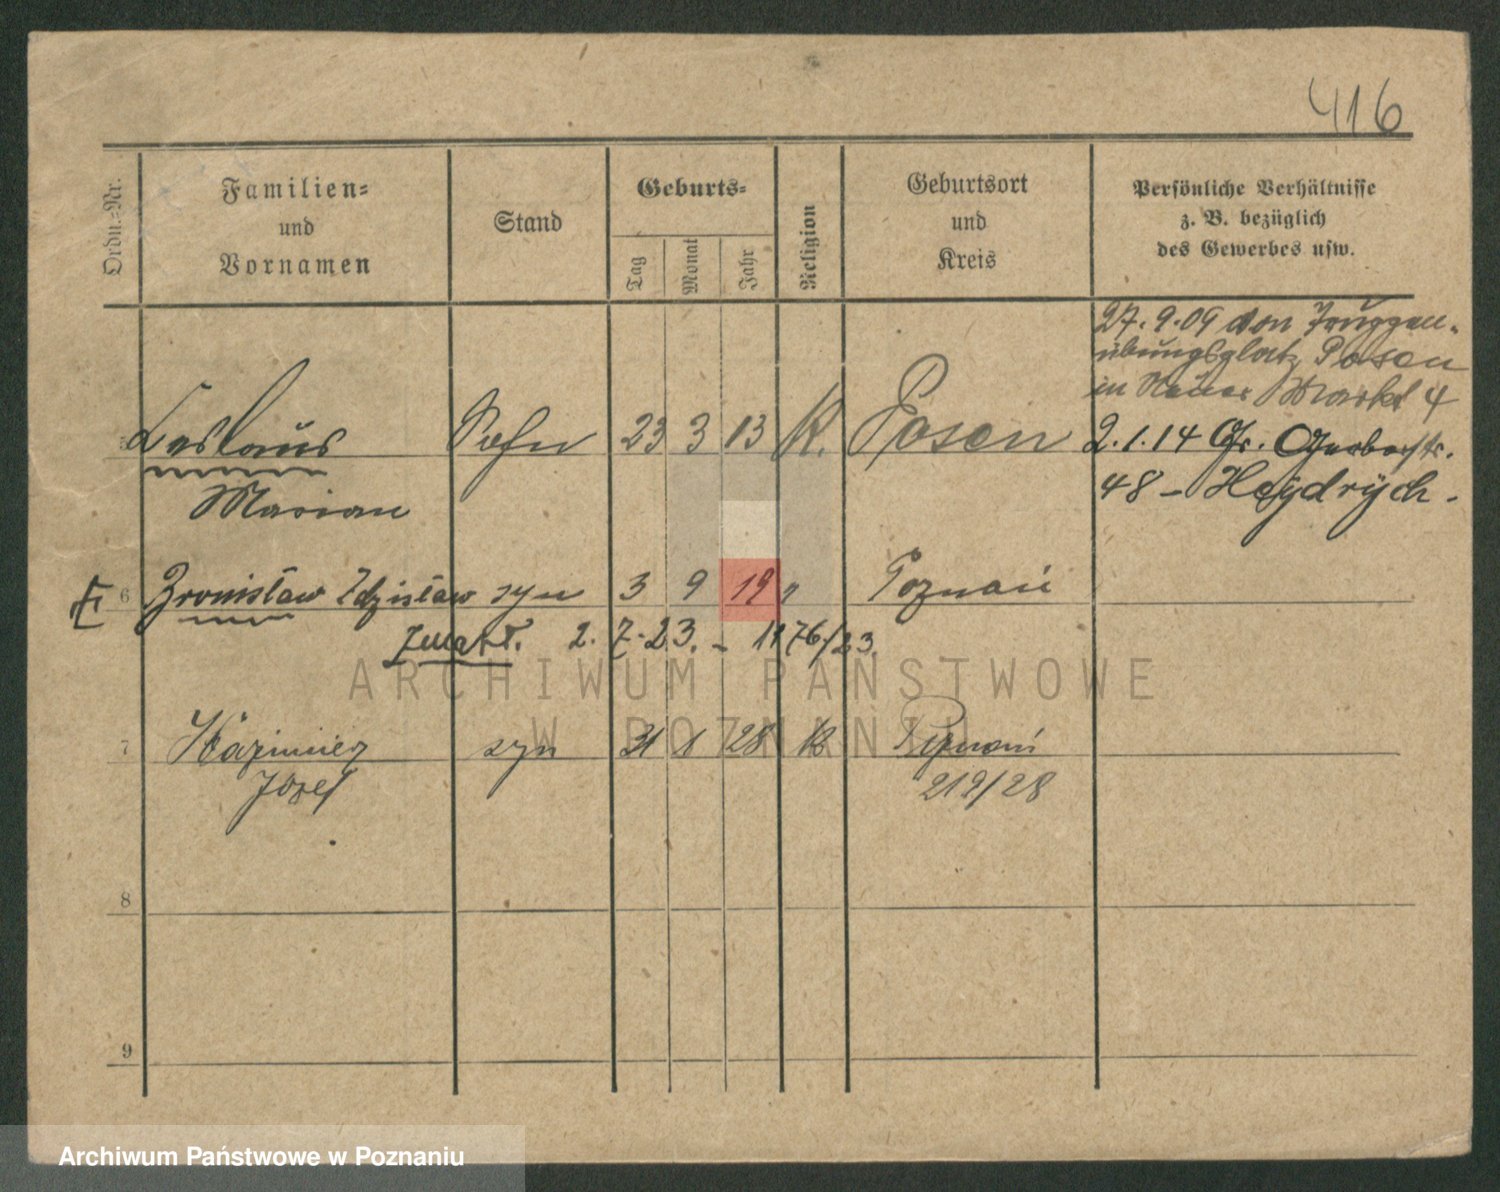 416
Ordn.=Nr.
Familien=
und
Vornamen
Stand
Geburts=
Tag
Monat
Jahr
Religion
Geburtsort
und
Kreis
Persönliche Verhältnisse
z. B. bezüglich
des Gewerbes usw.
27. 9. 09 von Truppen-
übungsplatz Posen
in Neuer Markt 4
Leslaus Sohn 23 3 13 K. Posen 2.1.14 Gr. Gerberstr.
Marian 48 - Heydrÿch.
6 Bronisław Zdzisław syn 3 9 19 Poznań
zmarł. 2. 7. 23. - 1176/23.
7 Kazimierz syn 31 1 28 K Poznań
Józef 219/28
8
9
ARCHIWUM PAŃSTWOWE
W POZNANIU
Archiwum Państwowe w Poznaniu